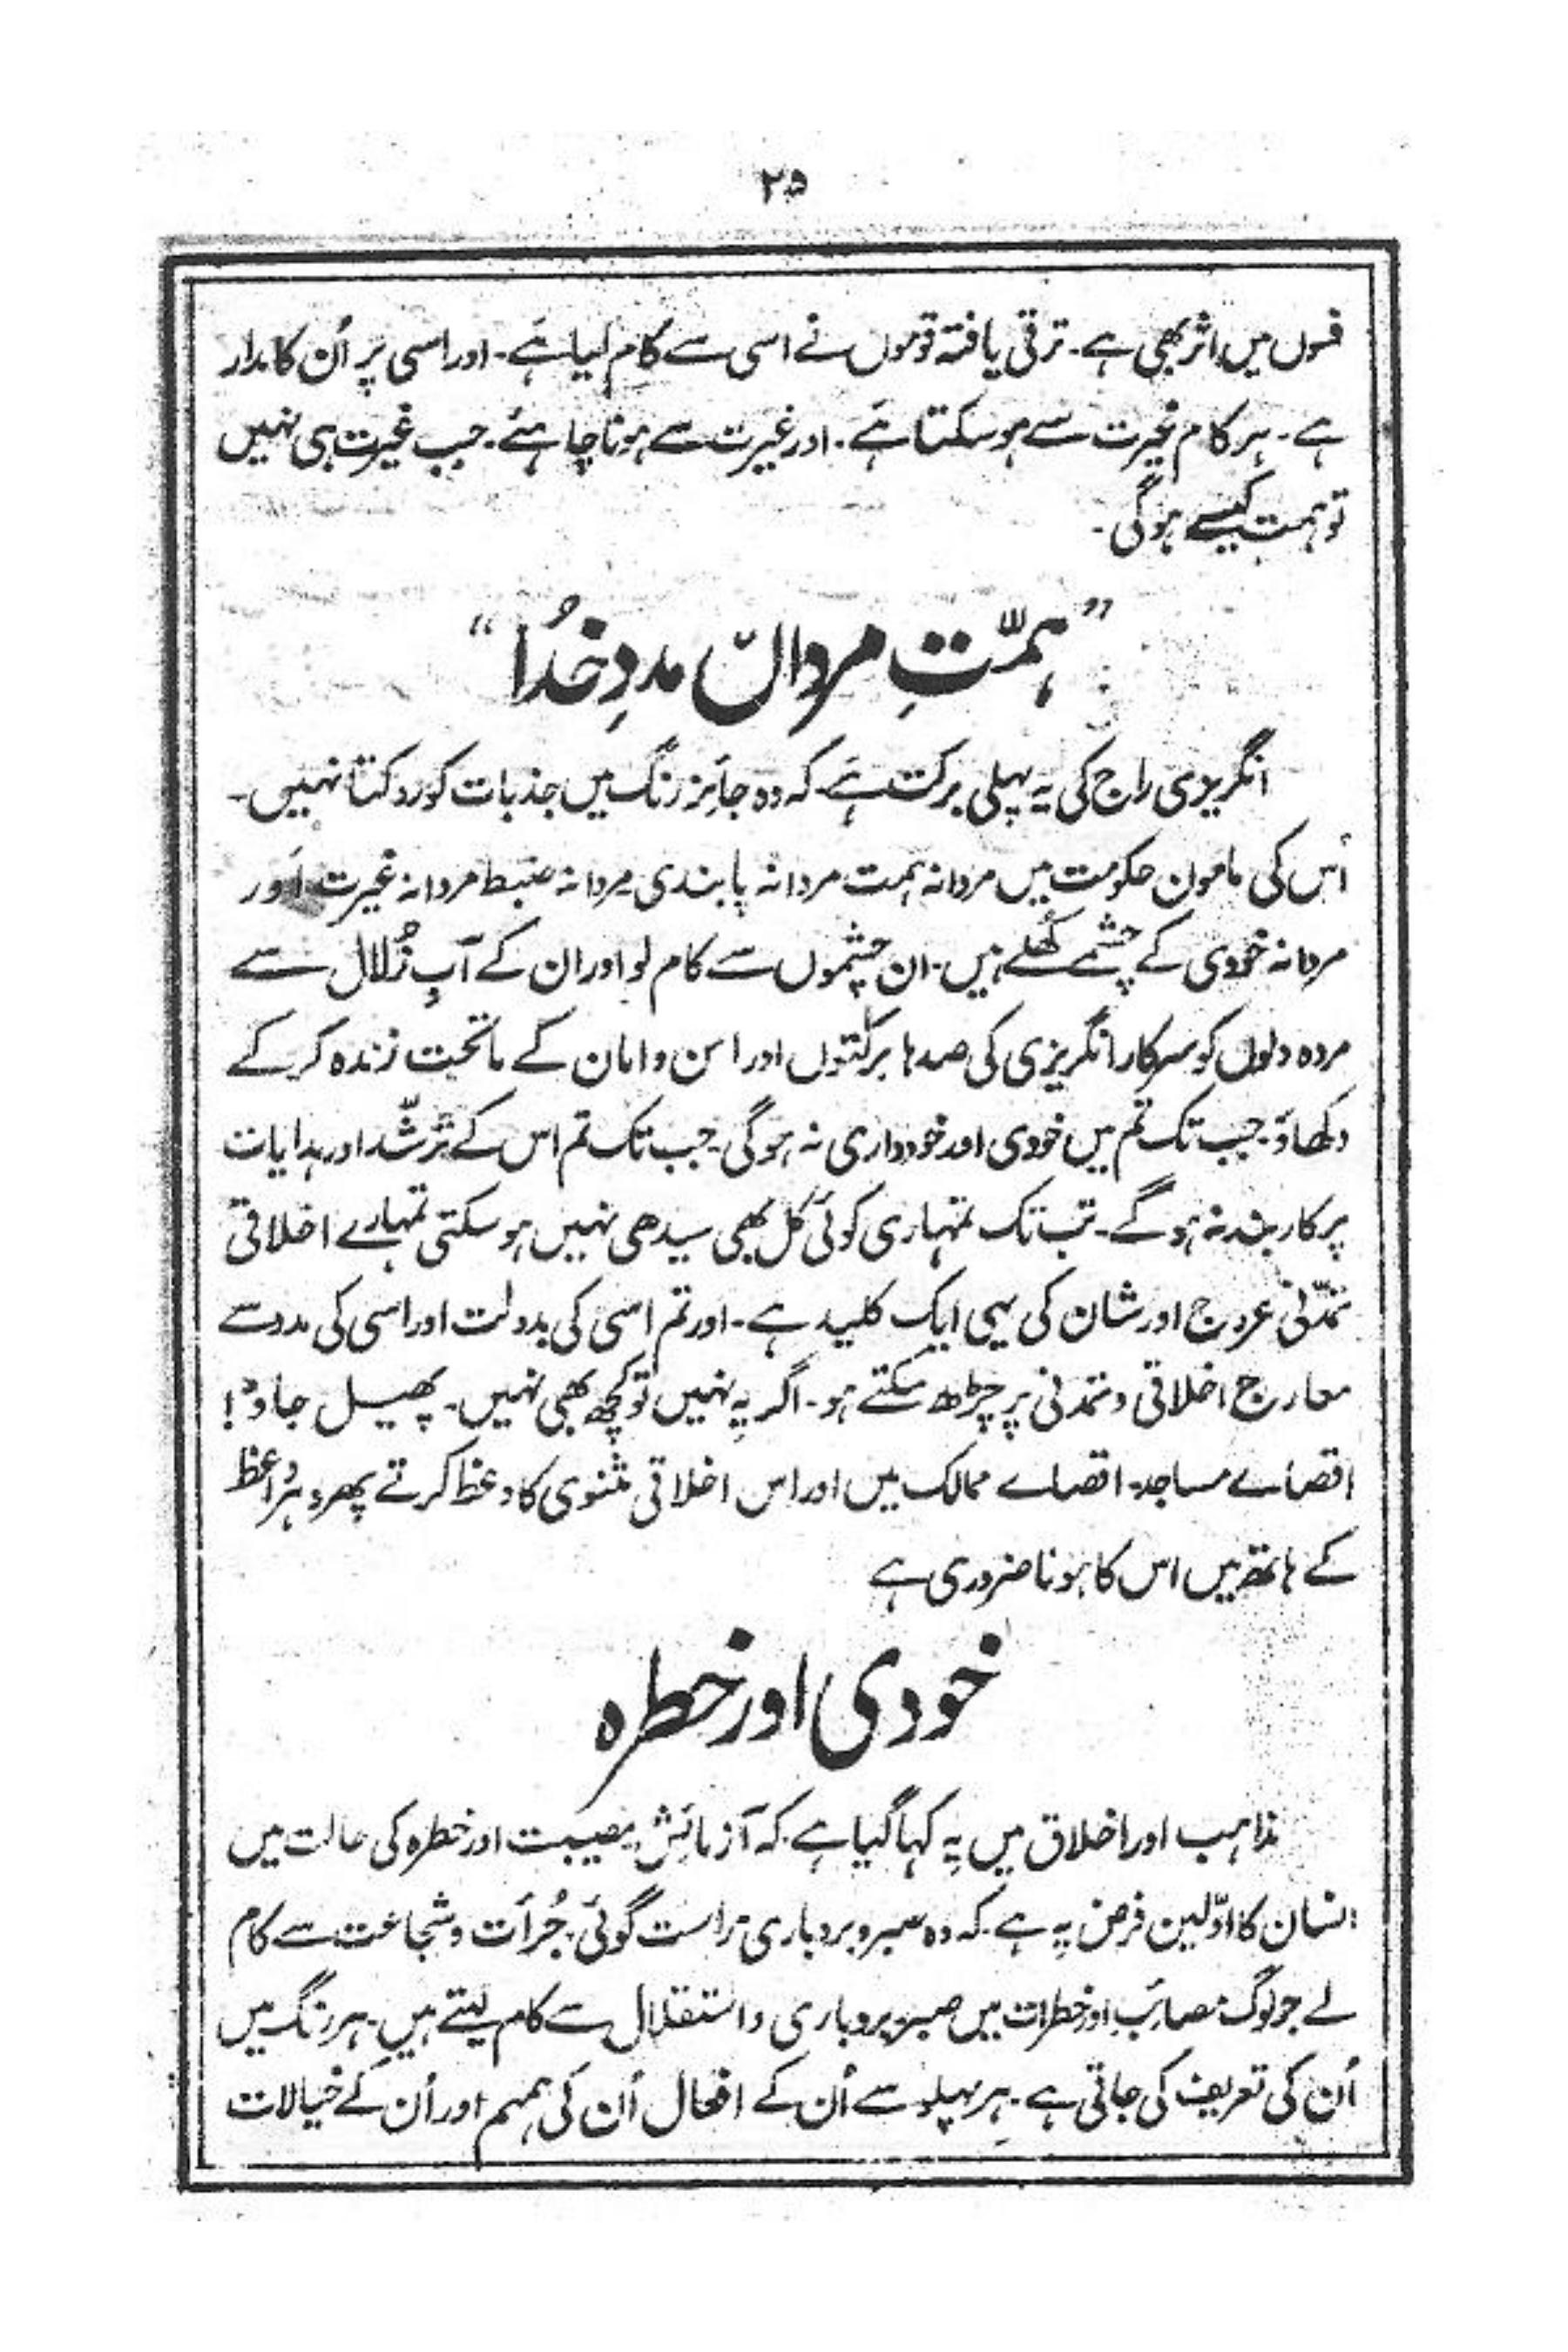 ۲۵
فسوں میں اثر بھی ہے۔ ترقی یافتہ قوموں نے اسی سے کام لیا ہے۔ اور اسی پر اُن کا مدار
ہے۔ ہر کام غیرت سے ہو سکتا ہے۔ اور غیرت سے ہونا چاہئے۔ جب غیرت ہی نہیں
تو ہمت کیسے ہو گی۔
”ہمّتِ مرداں مددِ خُدا“
انگریزی راج کی یہ پہلی برکت ہے۔ کہ وہ جائز رنگ میں جذبات کو روکتا نہیں۔
اُس کی مامون حکومت میں مردانہ ہمت مردانہ پابندی مردانہ ضبط مردانہ غیرت اور
مردانہ خودی کے چشمے کُھلے ہیں۔ ان چشموں سے کام لو اور ان کے آبِ زُلال سے
مردہ دلوں کو سرکار انگریزی کی صدہا برکتوں اور امن و امان کے ماتحت زندہ کر کے
دکھاؤ۔ جب تک تم میں خودی اور خودداری نہ ہوگی۔ جب تک تم اس کے ترشّد اور ہدایات
پر کاربند نہ ہو گے۔ تب تک تمہاری کوئی کَل بھی سیدھی نہیں ہو سکتی تمہارے اخلاقی
تمدّنی عروج اور شان کی یہی ایک کلید ہے۔ اور تم اسی کی بدولت اور اسی کی مدد سے
معارج اخلاقی و تمدنی پر چڑھ سکتے ہو۔ اگر یہ نہیں تو کچھ بھی نہیں۔ پھیل جاؤ!
اقصائے مساجد۔ اقصائے ممالک میں اور اس اخلاقی مثنوی کا وعظ کرتے پھرو ہر واعظ
کے ہاتھ میں اس کا ہونا ضروری ہے
خودی اور خطرہ
مذاہب اور اخلاق میں یہ کہا گیا ہے کہ آزمائش مصیبت اور خطرہ کی حالت میں
انسان کا اوّلین فرض یہ ہے۔ کہ وہ صبر و بردباری راست گوئی۔ جُرأت و شجاعت سے کام
لے جو لوگ مصائب اور خطرات میں صبر، بردباری و استقلال سے کام لیتے ہیں۔ ہر رنگ میں
اُن کی تعریف کی جاتی ہے۔ ہر پہلو سے اُن کے افعال اُن کی ہمم اور اُن کے خیالات